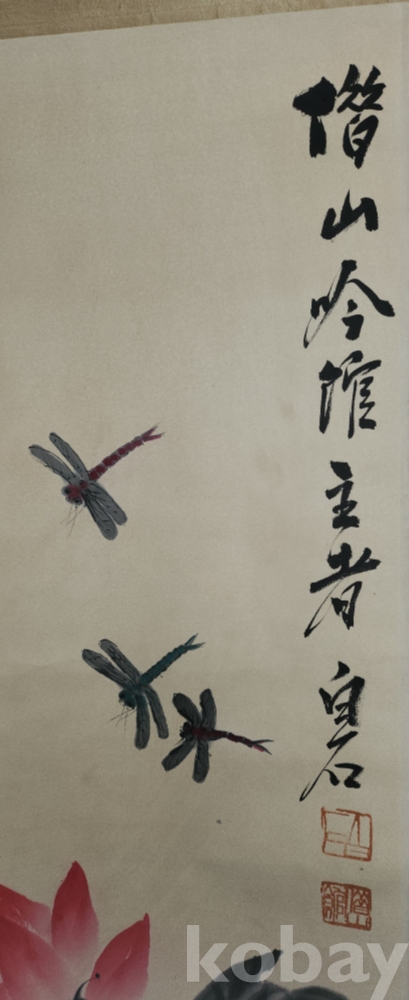 借山吟馆主者白石
kobay